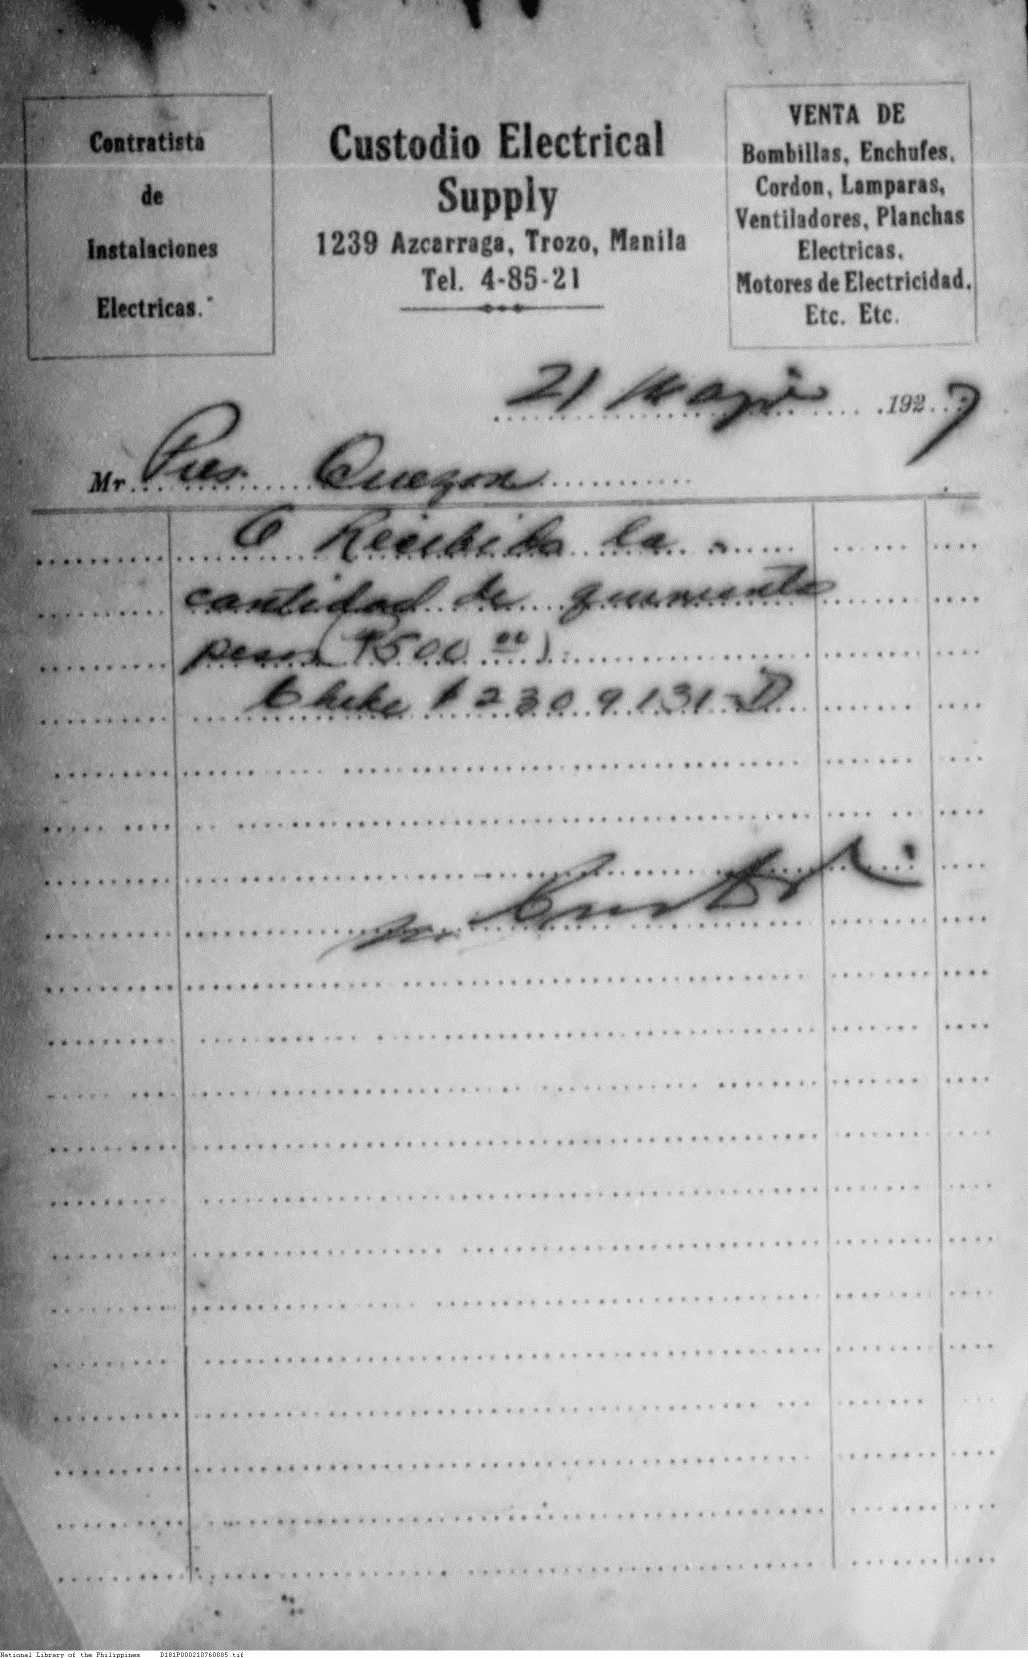 Contratista
de
Instalaciones
Electricas.
Custodio Electrical
Supply
1239 Azcarraga, Trozo, Manila
Tel. 4-85-21
VENTA DE
Bombillas, Enchufes,
Cordon, Lamparas,
Ventiladores, Planchas
Electricas.
Motores de Electricidad,
Etc. Etc.
21 Mayo 1927
Mr Pres. Quezon
Recibido la
cantidad de quinientos
pesos (₱500 00).
Cheke # 2309131-D
Custodio
National Library of the Philippines D181P000210760005.tif